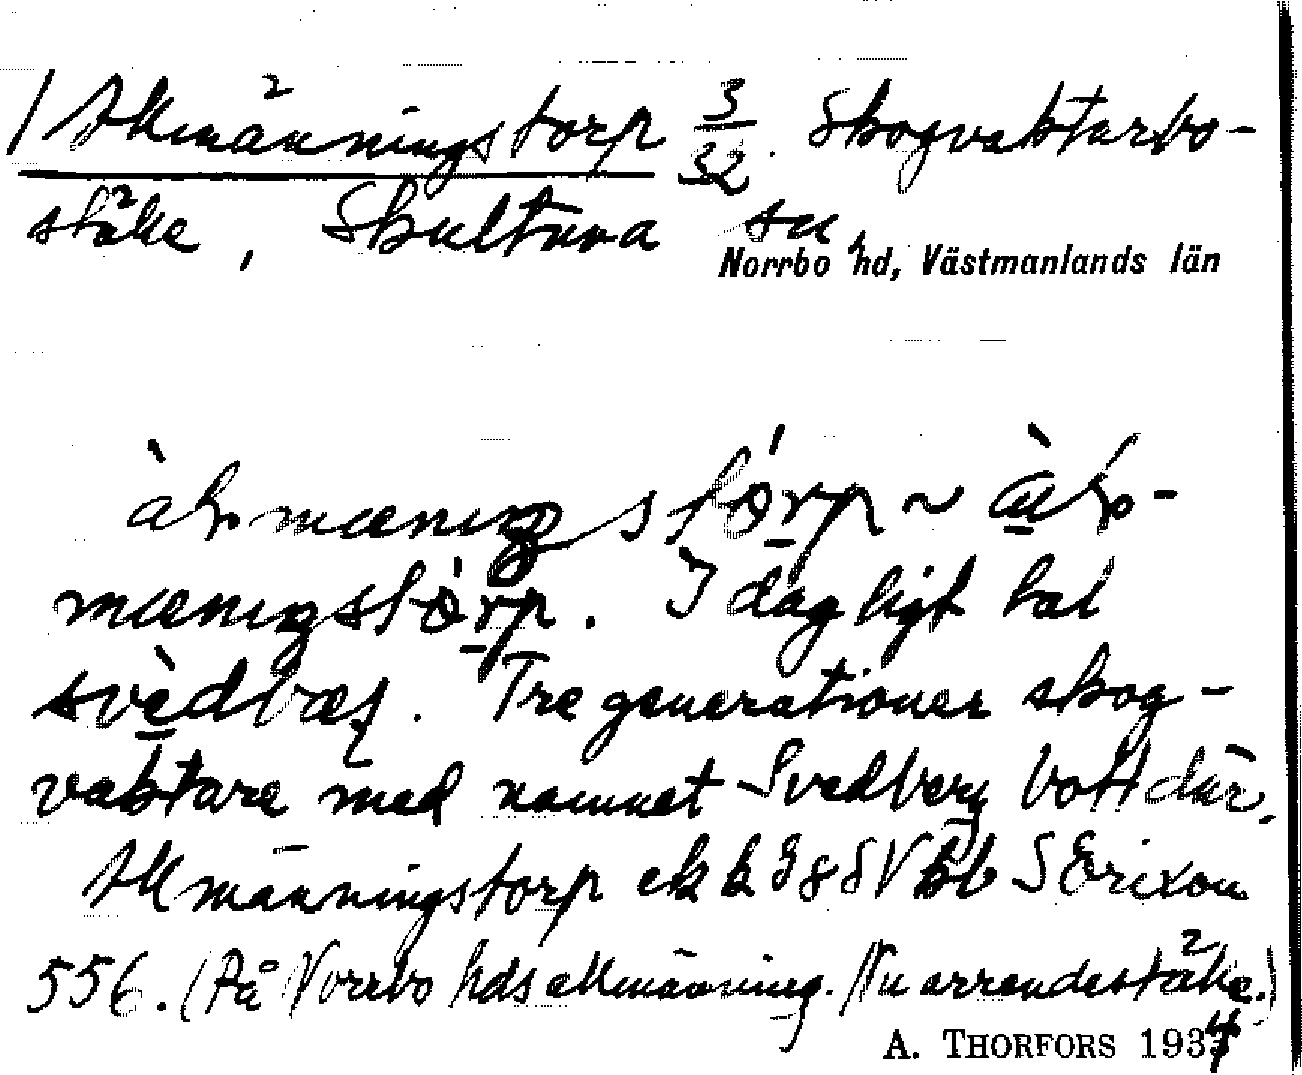 /Allmänningstorp 3/32. Skogvaktarbo-
ställe, Skultuna sn,
Norrbo hd, Västmanlands län
mæniŋstòrp. I dagligt tal
svèdbærj. Tre generationer skog-
vaktare med namnet Svedberg bott där.
Allmänningstorp ek bl 98 SV S Erixon
556. (På Norrbo hds allmänning. Nu arrendeställe.)
A. THORFORS 1934